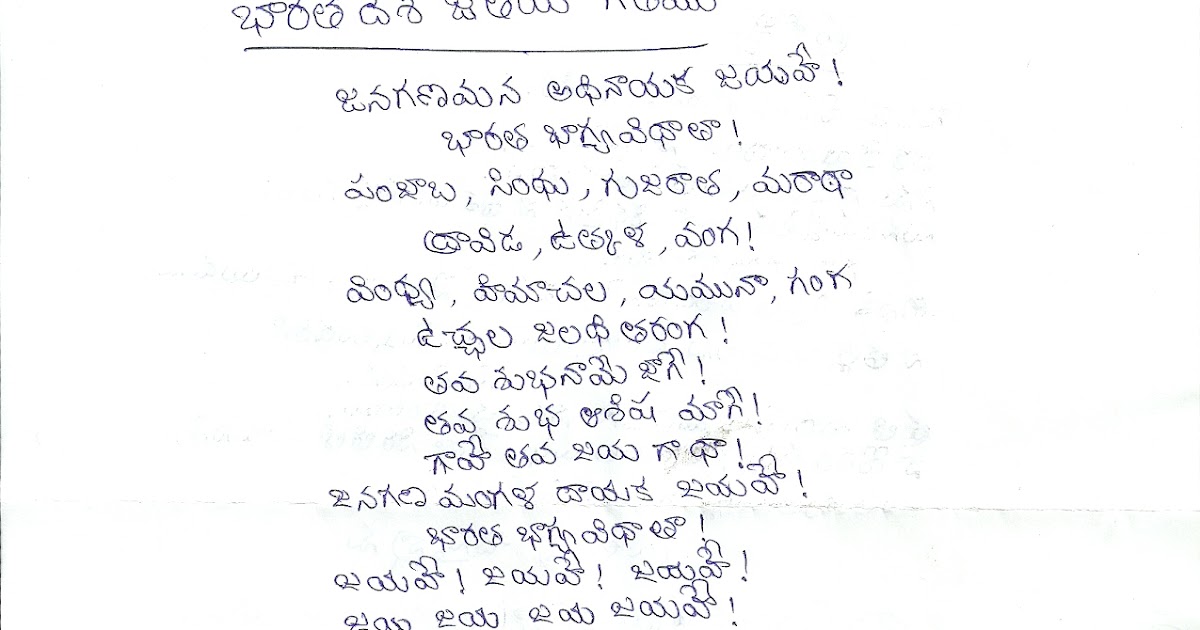 భారత దేశ జాతీయ గీతము
జనగణమన అధినాయక జయహే!
భారత భాగ్యవిధాతా!
పంజాబ, సింధు, గుజరాత, మరాఠా
ద్రావిడ, ఉత్కళ, వంగ!
వింధ్య, హిమాచల, యమునా, గంగ
ఉచ్ఛల జలధి తరంగ!
తవ శుభనామే జాగే!
తవ శుభ ఆశిష మాగే!
గాహే తవ జయ గాథా!
జనగణ మంగళ దాయక జయహే!
భారత భాగ్యవిధాతా!
జయహే! జయహే! జయహే!
జయ జయ జయ జయహే!